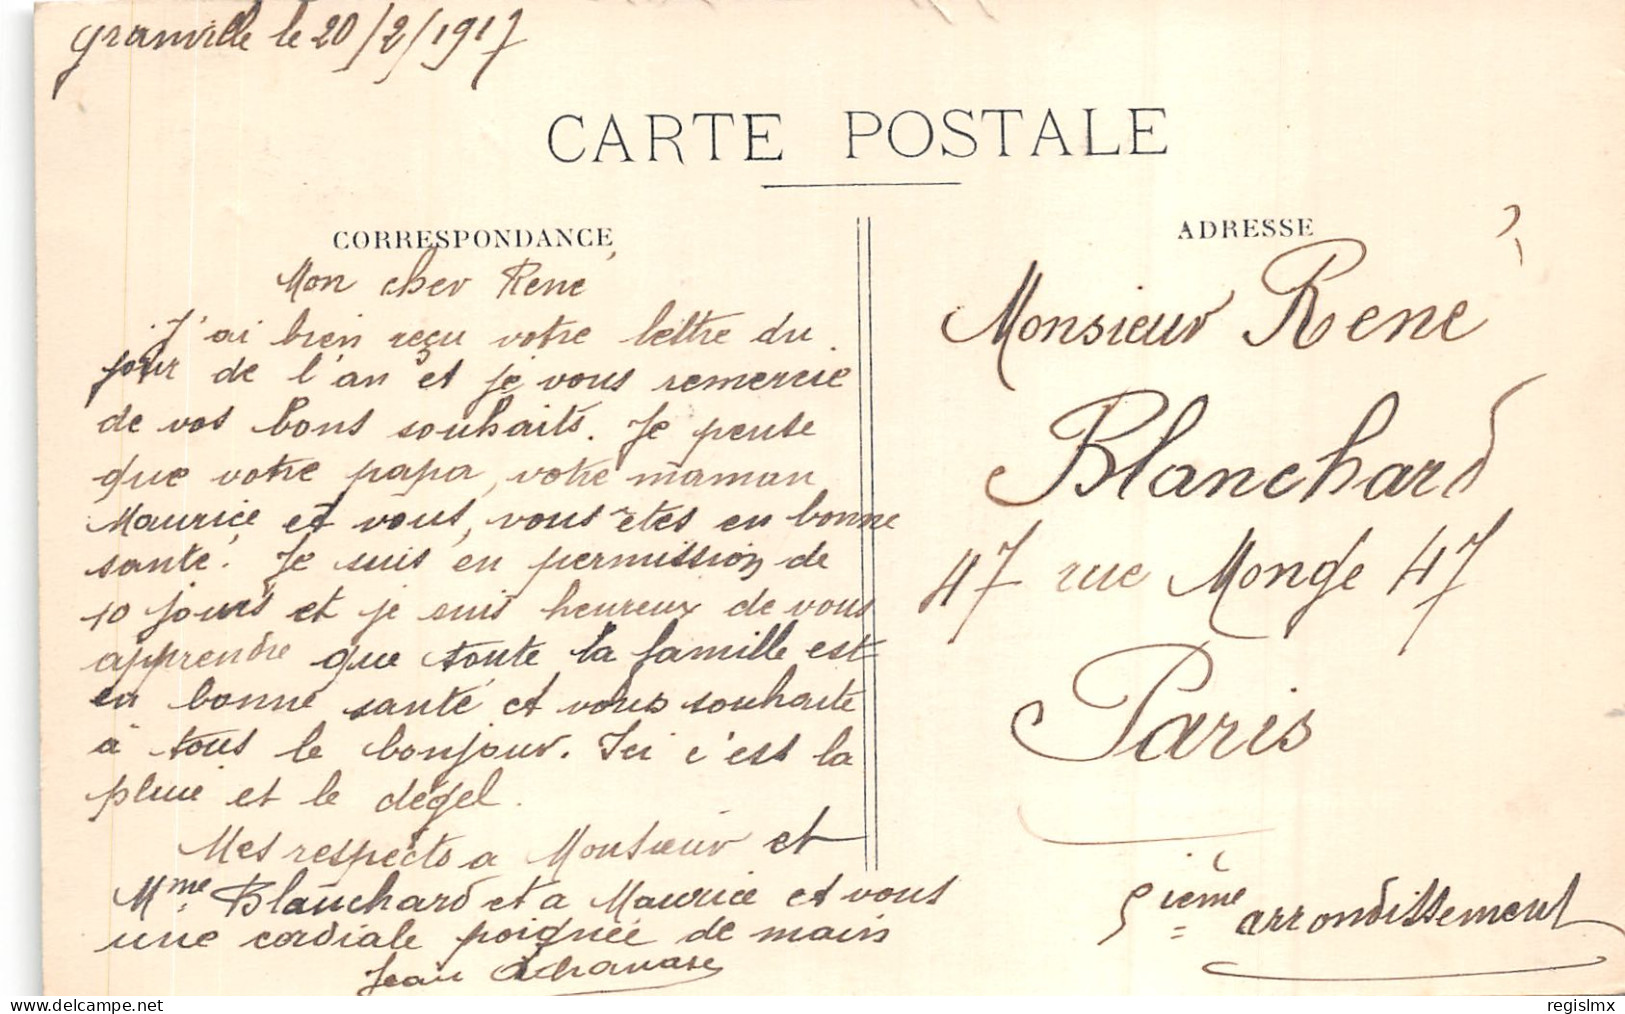 Granville le 20/2/1917
CARTE POSTALE
CORRESPONDANCE
Mon cher René
J'ai bien reçu votre lettre du
jour de l'an et je vous remercie
de vos bons souhaits. Je pense
que votre papa, votre maman
Maurice et vous, vous êtes en bonne
santé. Je suis en permission de
10 jours et je suis heureux de vous
apprendre que toute la famille est
en bonne santé et vous souhaite
à tous le bonjour. Ici c'est la
pluie et le dégel.
Mes respects a Monsieur et
Mme Blanchard et a Maurice et vous
une cordiale poignée de main
Jean Athanase
ADRESSE
Monsieur René
Blanchard
47 rue Monge 47
Paris
5ième arrondissement
delcampe.net
regislmx